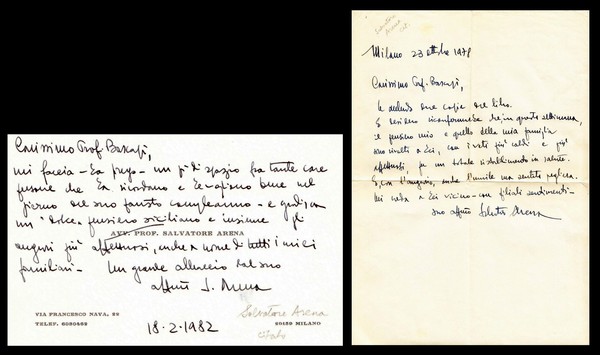 Carissimo Prof. Bascapè,
mi faccia - La prego - un pò di spazio fra tante care
persone che La ricordano e Le vogliono bene nel
giorno del suo fausto compleanno - e gradisca
un "dolce" pensiero siciliano e insieme gli
AVV. PROF. SALVATORE ARENA
auguri più affettuosi, anche a nome di tutti i miei
familiari. Un grande abbraccio dal suo
affmo S. Arena
VIA FRANCESCO NAVA,
TELEF.
18-2-1982
Salvatore Arena
20159 MILANO
Salvatore
Arena
Milano 23 ottobre 1978
Carissimo Prof. Bascapè,
Le accludo una copia del libro.
E desidero riconfermarLe che in questa settimana,
il pensiero mio e quello della mia famiglia
sono rivolti a Lei, con i voti più caldi e più
affettuosi, per un totale ristabilimento in salute.
E, con l'augurio, anche l'umile ma sentita preghiera.
Mi creda a Lei vicino - con filiali sentimenti -
suo affmo Salvatore Arena